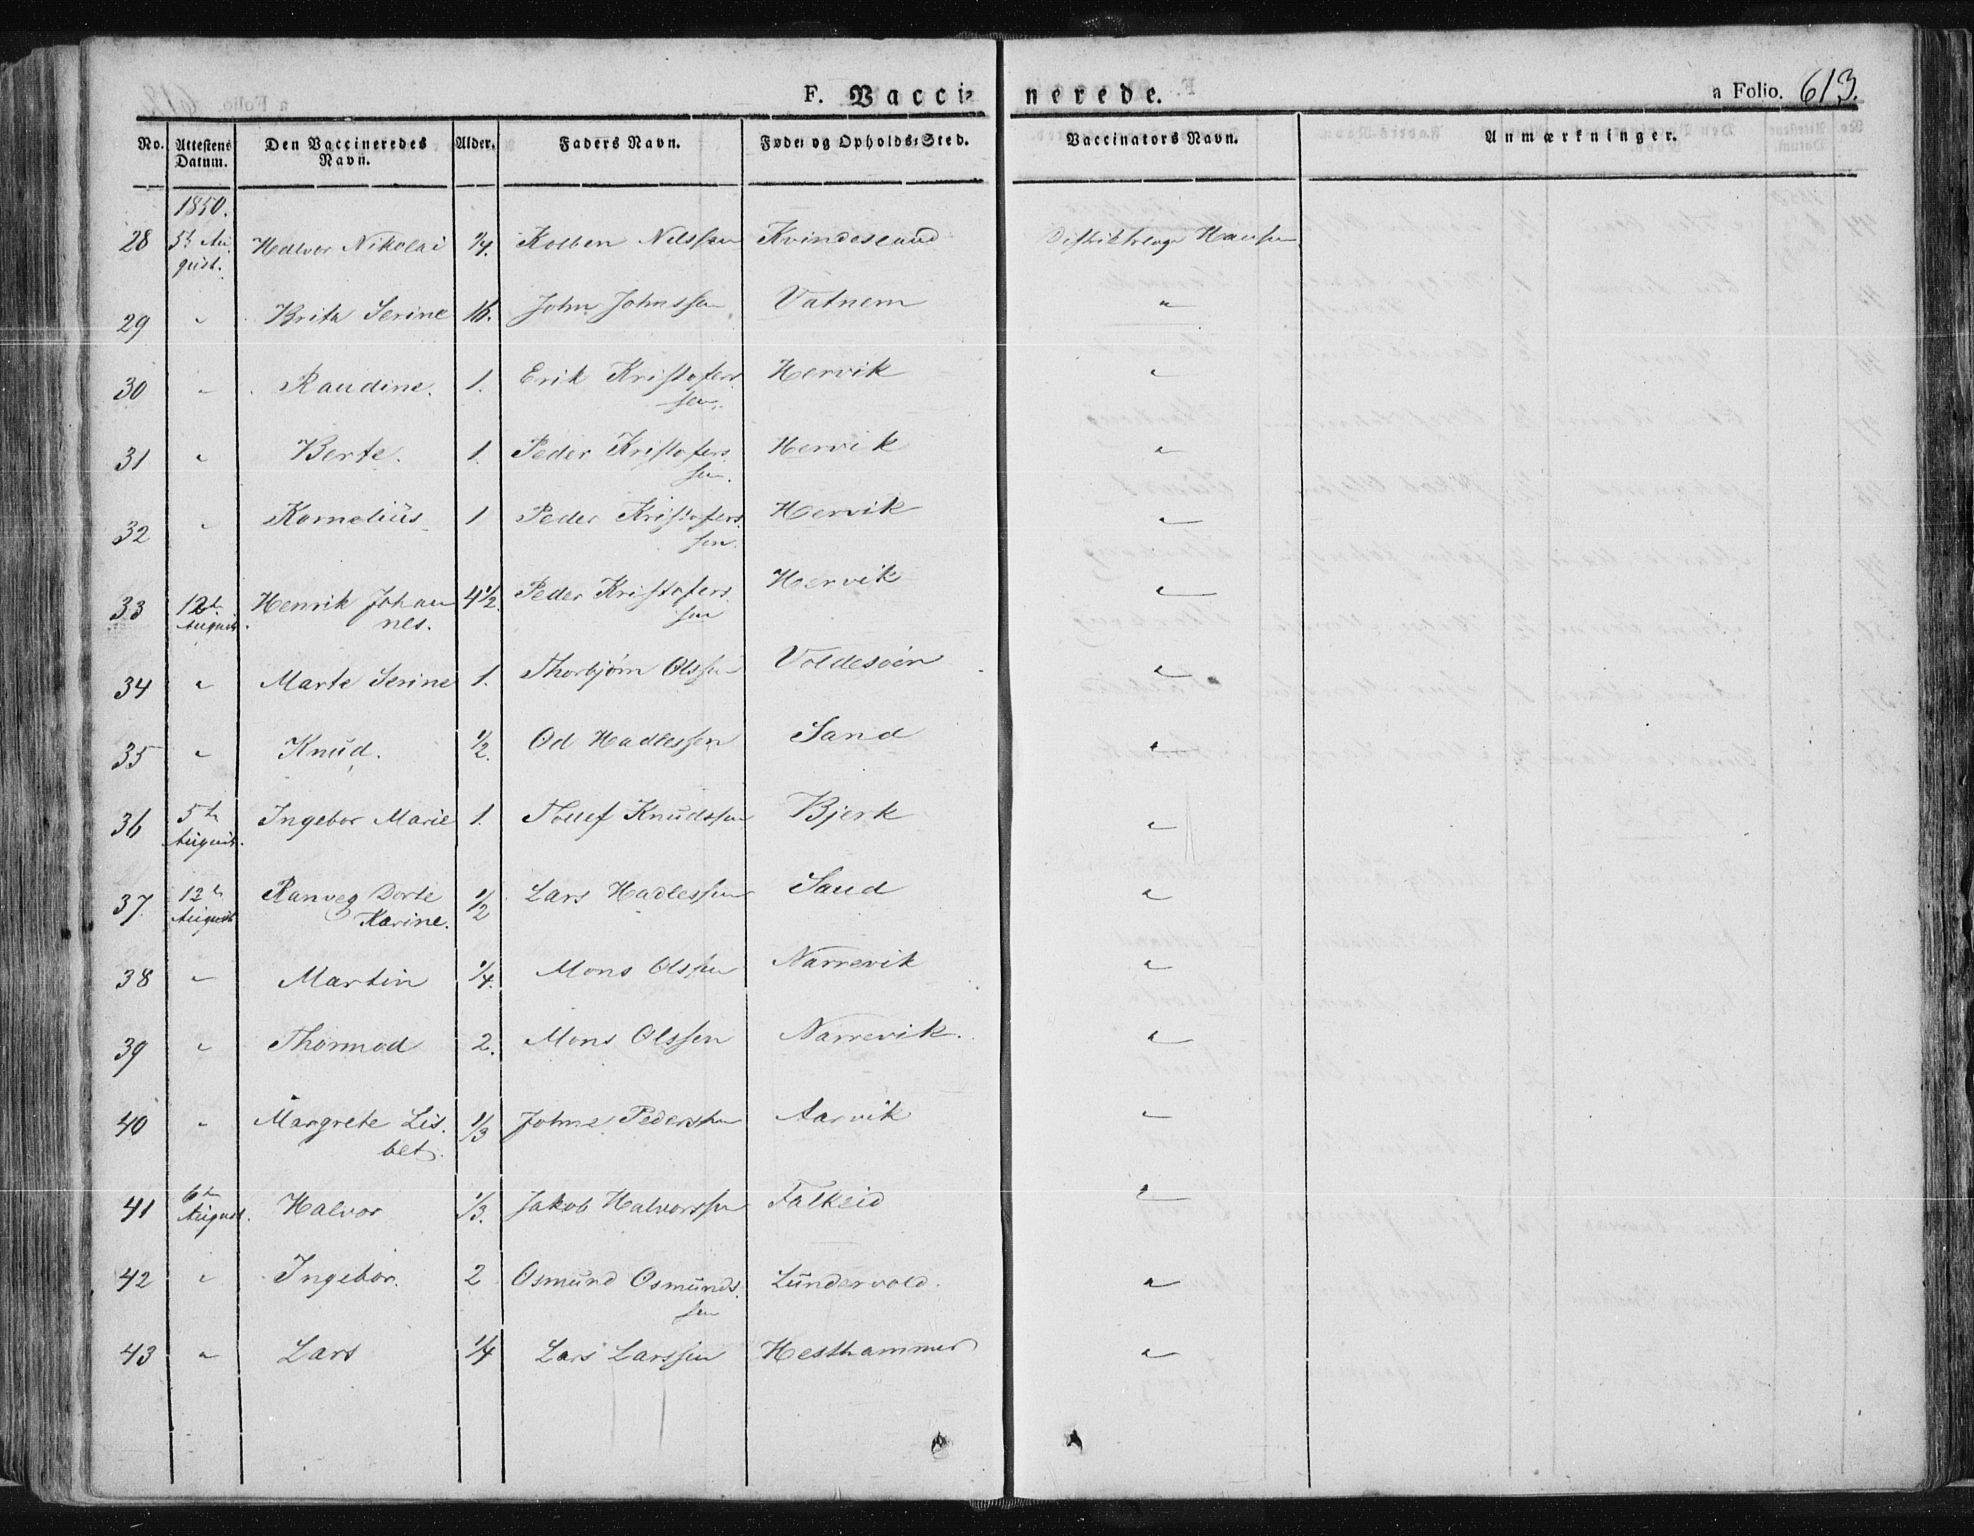 F. Vacci= nerede. a Folio. 613.
No. Attestens Datum. Den Vaccineredes Navn. Alder. Faders Navn. Føde= og Opholds=Sted. Vaccinators Navn. Anmærkninger.
1850.
28 5t Au Halvor Nikolai 1/4. Kolben Nilssen Kvindesland Distriktslæge Hansen
gust.
29 " Brita Serine 16. John Johnssen Vatnem "
30 " Raudine. 1. Erik Kristofers Hervik "
sen.
31 " Berte. 1. Peder Kristofers Hervik "
sen.
32 " Kornelius 1 Peder Kristofers Hervik "
sen.
33 12t Henrik Johan 4 1/2. Peder Kristofers Hervik "
August. nes. sen
34 " Marte Serine 1. Thorbjørn Olssen Voldesøen "
35 " Knud. 1/2. Od Hadlessen Sand "
36 5t Ingebor Marie 1. Tollef Knudssen Bjerk "
August.
37 12t Ranveg Dorte 1/2 Lars Hadlessen Sand "
August Karine.
38 " Martin 1/4. Mons Olssen Narrevik "
39 " Thormod 2. Mons Olssen Narrevik. "
40 " Margrete Lis. 1/3 Johne Pederssen Aarvik "
bet.
41 6t Halvor 1/3. Jakob Halvorssen Falkeid "
August.
42 " Ingebor. 2 Osmund Osmunds Lundervold. "
sen
43 " Lars 1/4 Lars Larssen Hesthammer "